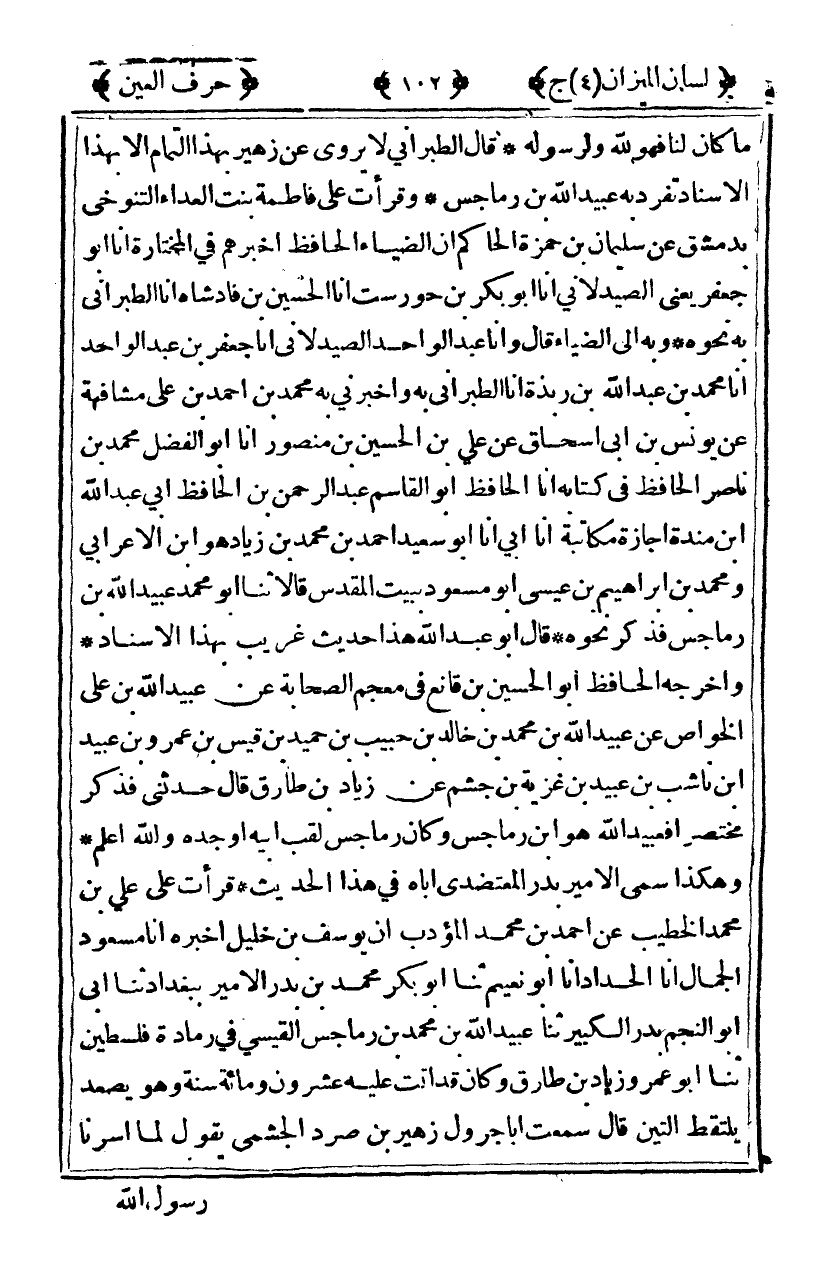 ﴿ لسان الميزان (٤) ج ﴾ ﴿ ١٠٢ ﴾ ﴿ حرف العين ﴾
ما كان لنا فهو لله ولرسوله * قال الطبراني لا يروى عن زهير بهذا التمام الا بهذا
الاسناد تفرد به عبيد الله بن رماجس * وقرأت على فاطمة بنت العداء التنوخى
بدمشق عن سليمان بن حمزة الحاكم ان الضياء الحافظ اخبرهم في المختارة انا ابو
جعفر يعنى الصيدلاني انا ابو بكر بن حورست انا الحسين بن فادشاه انا الطبرانى
به نحوه * وبه الى الضياء قال وانا عبد الواحد الصيدلانى انا جعفر بن عبد الواحد
انا محمد بن عبد الله بن ريذة انا الطبرانى به واخبرني به محمد بن احمد بن على مشافهة
عن يونس بن ابى اسحاق عن علي بن الحسين بن منصور انا ابو الفضل محمد بن
ناصر الحافظ فى كتابه انا الحافظ ابو القاسم عبد الرحمن بن الحافظ ابي عبد الله
ابن مندة اجازة مكاتبة انا ابي انا ابو سعيد احمد بن محمد بن زياد هو ابن الاعرابي
ومحمد بن ابراهيم بن عيسى ابو مسعود ببيت المقدس قالا ثنا ابو محمد عبيد الله بن
رماجس فذكر نحوه * قال ابو عبد الله هذا حديث غريب بهذا الاسناد *
واخرجه الحافظ ابو الحسين بن قانع فى معجم الصحابة عن عبيد الله بن على
الخواص عن عبيد الله بن محمد بن خالد بن حبيب بن حميد بن قيس بن عمرو بن عبيد
ابن ناشب بن عبيد بن غزية بن جشم عن زياد بن طارق قال حدثنى فذكر
مختصرا فعبيد الله هو ابن رماجس وكان رماجس لقب ابيه او جده والله اعلم *
وهكذا سمى الامير بدر المعتضدى اباه في هذا الحديث * قرأت على علي بن
محمد الخطيب عن احمد بن محمد المؤدب ان يوسف بن خليل اخبره انا مسعود
الجمال انا الحداد انا ابو نعيم ثنا ابو بكر محمد بن بدر الامير ببغداد ثنا ابى
ابو النجم بدر الكبير ثنا عبيد الله بن محمد بن رماجس القيسي في رمادة فلسطين
ثنا ابو عمرو زياد بن طارق وكان قد اتت عليه عشرون ومائة سنة وهو يصعد
يلتقط التين قال سمعت ابا جرول زهير بن صرد الجشمى يقول لما اسرنا
رسول الله